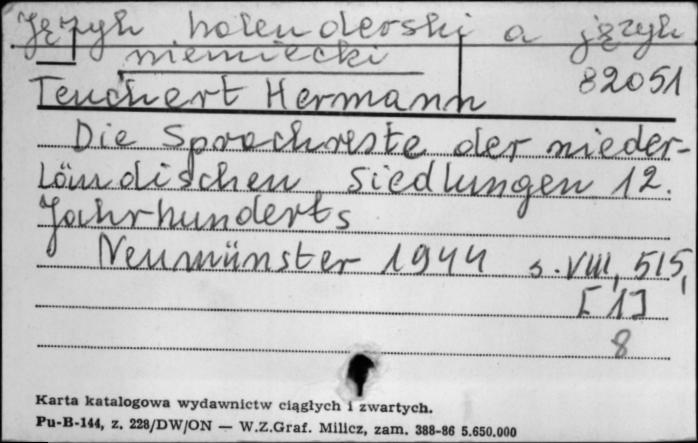 Język holenderski a język
niemiecki
82051
Teuchert Hermann
Die Sprachreste der nieder-
ländischen Siedlungen 12.
Jahrhunderts
Neumünster 1944 s. VIII, 515,
[1]
8
Karta katalogowa wydawnictw ciągłych i zwartych.
Pu-B-144, z. 228/DW/ON — W.Z.Graf. Milicz, zam. 388-86 5.650.000